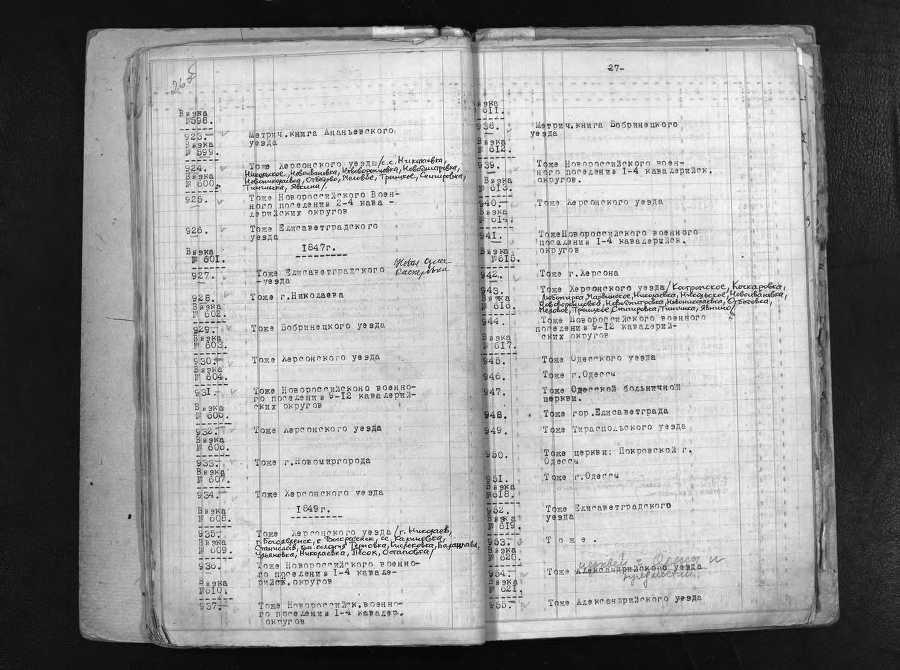 26об
Вязка
№598.
923.
Метрич.книга Ананьевского
уезда
Вязка
№ 599.
924.
Тоже Херсонского уезда/с.с. Николаевка,
Никольское, Новоивановка, Нововоронцовка, Новодмитровка,
Новониколаевка, Отбедово, Меловое, Троицкое, Снигиревка,
Тягинка, Явкина/
Вязка
№ 600.
925.
Тоже Новороссийского Воен-
ного поселения 2-4 кава -
лерийских округов
926.
Тоже Елисаветградского
уезда
1847г.
Вязка
№ 601.
927.
Тоже Елисаветградского
уезда
928.
Тоже г.Николаева
Вязка
№ 602.
929.
Тоже Бобринецкого уезда
Вязка
№ 603.
930.
Тоже Херсонского уезда
Вязка
№ 604.
931.
Тоже Новороссийсконо военно-
го поселения 9-12 кавалерий-
ских округов
Вязка
№ 605.
932.
Тоже Херсонского уезда
Вязка
№ 606.
933.
Тоже г.Новомиргорода
Вязка
№ 607.
934.
Тоже Херсонского уезда
1849г.
Вязка
№ 608.
935.
Тоже Херсонского уезда/г. Николаев,
Богоявленск,
Станислав,
Терновка, Кисляковка,
Николаевка, Песок,
Вязка
№ 609.
936.
Тоже Новороссийского военно-
го поселения 1-4 кавале-
рийск.округов
Вязка
№610.
937.
Тоже Новороссийск.военно-
го поселения 1-4 кавалер.
округов
-27-
Вязка
611.
938.
Метрич.книга Бобринецкого
уезда
Вязка
612.
939.
Тоже Новороссийского воен-
ного поселения 1-4 кавалерийск.
округов.
Вязка
613.
940.
Тоже Херсонского уезда
Вязка
614.
941.
ТожеНовороссийского военного
поселения 1-4 кавалерийск.
округов
Вязка
№615.
942.
Тоже г.Херсона
943.
Тоже Херсонского уезда/Костромское, Кошкаровка,
Николаевка, Никольское, Новоивановка,
Нововоронцовка, Новодмитровка, Новониколаевка,
Меловое, Троицкое, Снигиревка, Тягинка, Явкина/
Вязка
№ 616.
944.
Тоже Новороссийского военного
поселения 9-12 кавалерий-
ских округов
Вязка
№617.
945.
Тоже Одесского уезда
946.
Тоже г.Одессы
947.
Тоже Одесской больничной
церкви.
948.
Тоже гор.Елисаветграда
949.
Тоже Тираспольского уезда
950.
Тоже церкви: Покровской г.
Одессы
951.
Тоже г.Одессы
Вязка
№618.
952.
Тоже Елисаветградского
уезда
Вязка
№619.
953.
Т о ж е .
Вязка
№620.
954.
Тоже Александрийского уезда
Вязка
№621.
955.
Тоже Александрийского уезда